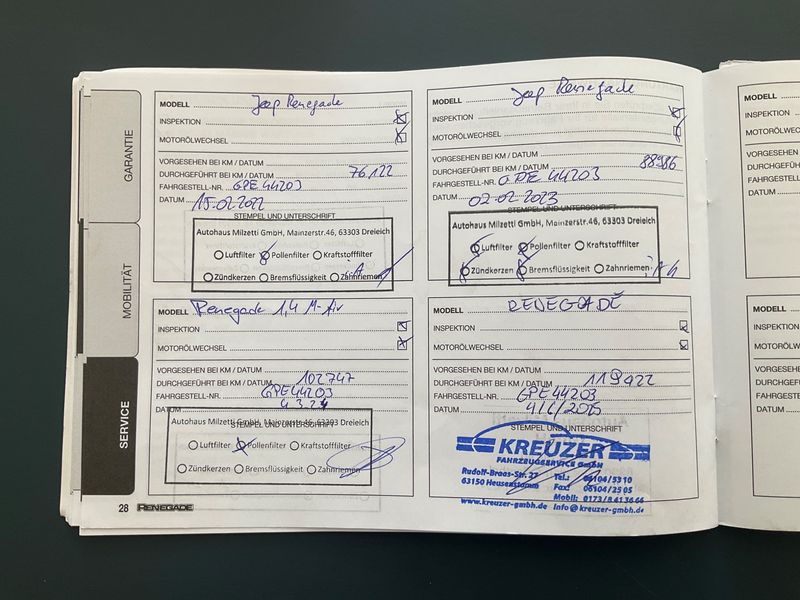 GARANTIE
MOBILITÄT
SERVICE
MODELL Jeep Renegade
INSPEKTION
MOTORÖLWECHSEL
VORGESEHEN BEI KM / DATUM
DURCHGEFÜHRT BEI KM / DATUM 76122
FAHRGESTELL-NR. GPE44203
DATUM 15.02.2022
STEMPEL UND UNTERSCHRIFT
Autohaus Milzetti GmbH, Mainzerstr.46, 63303 Dreieich
Luftfilter Pollenfilter Kraftstofffilter
Zündkerzen Bremsflüssigkeit Zahnriemen
i.A
MODELL Jeep Renegade
INSPEKTION
MOTORÖLWECHSEL
VORGESEHEN BEI KM / DATUM
DURCHGEFÜHRT BEI KM / DATUM 88986
FAHRGESTELL-NR. GPE44203
DATUM 02.02.2023
STEMPEL UND UNTERSCHRIFT
Autohaus Milzetti GmbH, Mainzerstr.46, 63303 Dreieich
Luftfilter Pollenfilter Kraftstofffilter
Zündkerzen Bremsflüssigkeit Zahnriemen
MODELL Renegade 1,4 M-Air
INSPEKTION
MOTORÖLWECHSEL
VORGESEHEN BEI KM / DATUM
DURCHGEFÜHRT BEI KM / DATUM 102747
FAHRGESTELL-NR. GPE44203
DATUM 4.3.24
STEMPEL UND UNTERSCHRIFT
Autohaus Milzetti GmbH, Mainzerstr.46, 63303 Dreieich
Luftfilter Pollenfilter Kraftstofffilter
Zündkerzen Bremsflüssigkeit Zahnriemen
MODELL RENEGADE
INSPEKTION
MOTORÖLWECHSEL
VORGESEHEN BEI KM / DATUM
DURCHGEFÜHRT BEI KM / DATUM 119922
FAHRGESTELL-NR. GPE44203
DATUM 4/6/2025
STEMPEL UND UNTERSCHRIFT
KREUZER
FAHRZEUGSERVICE GmbH
Rudolf-Braas-Str. 27 Tel.: 06104/5310
63150 Heusenstamm Fax: 06104/2505
Mobil: 0173/8413666
www.kreuzer-gmbh.de info@kreuzer-gmbh.de
28 RENEGADE
MODELL
INSPEKTION
MOTORÖLWECHSEL
VORGESEHEN
DURCHGEFÜHR
FAHRGESTELL-
DATUM
MODELL
INSPEKTION
MOTORÖLWE
VORGESEHEN
DURCHGEFÜH
FAHRGESTELL
DATUM